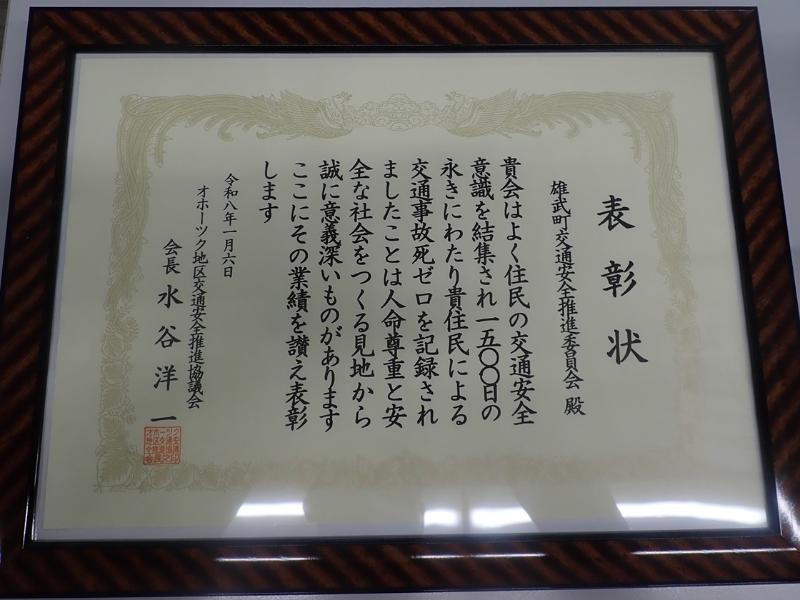 表彰状
雄武町交通安全推進委員会 殿
貴会はよく住民の交通安全
意識を結集され一五〇〇日の
永きにわたり貴住民による
交通事故死ゼロを記録され
ましたことは人命尊重と安
全な社会をつくる見地から
誠に意義深いものがあります
ここにその業績を讃え表彰
します
令和八年一月六日
オホーツク地区交通安全推進協議会
会長 水谷洋一